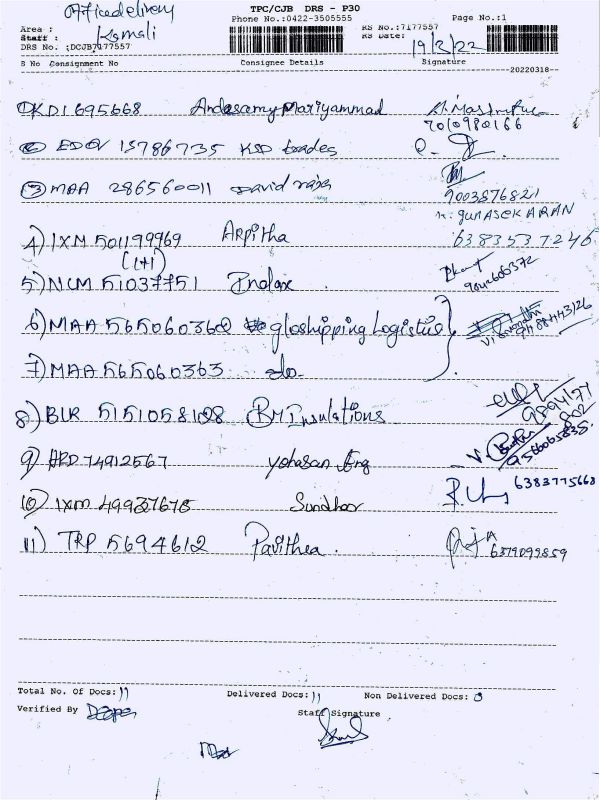 Officedelivery TPC/CJB DRS - P30
Phone No.:0422-3505555 Page No.:1
Area :
Staff : Kamali RS No.:7177557
DRS No. :DCJB7177557 RS Date: 19/3/22
S No Consignment No Consignee Details Signature
20220318
1) KDI 695668 Andasamy Mariyammad
7010980166
2) EDQV 15786735 KSD trades
3) MAA 286560011 David raja
9003876821
N. GUNASEKARAN
4) IXM 501199969 Arpitha 6383537246
(1+1)
5) NCM 51037751 Inolax
6) MAA 565060362 gloshipping Logistics
7) MAA 565060363 do
8) BLR 5151058128 BM Insulations
9566065835
9) HRD 74912567 yohasan Eng
10) IXM 49937678 Sundhar 6383775668
11) TRP 5694612 Pavithea. 6379099859
Total No. Of Docs: 11 Delivered Docs: 11 Non Delivered Docs: 0
Verified By Staff Signature